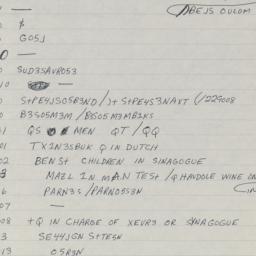 ABEJS OULOM
—
$
GOSJ
0 —
SUD3SAVRO53
10 —
StPEYJSOSR3ND / It StPEYS3NAVT (/229008
B3SO5M3M / B5SO5M3MB2KS
01 QS MEN QT / QQ
01 TX1N3SBUK Q IN DUTCH
02 BEN St CHILDREN IN SINAGOGUE
3 MAZL IN MAN TESt / Q HAVDOLE WINE ON
6 PARN3S / PARNO5S3N
07 —
08 tQ IN CHARGE OF XEVR3 OR SYNAGOGUE
3 SE44JGN StTESN
13 O5R3N